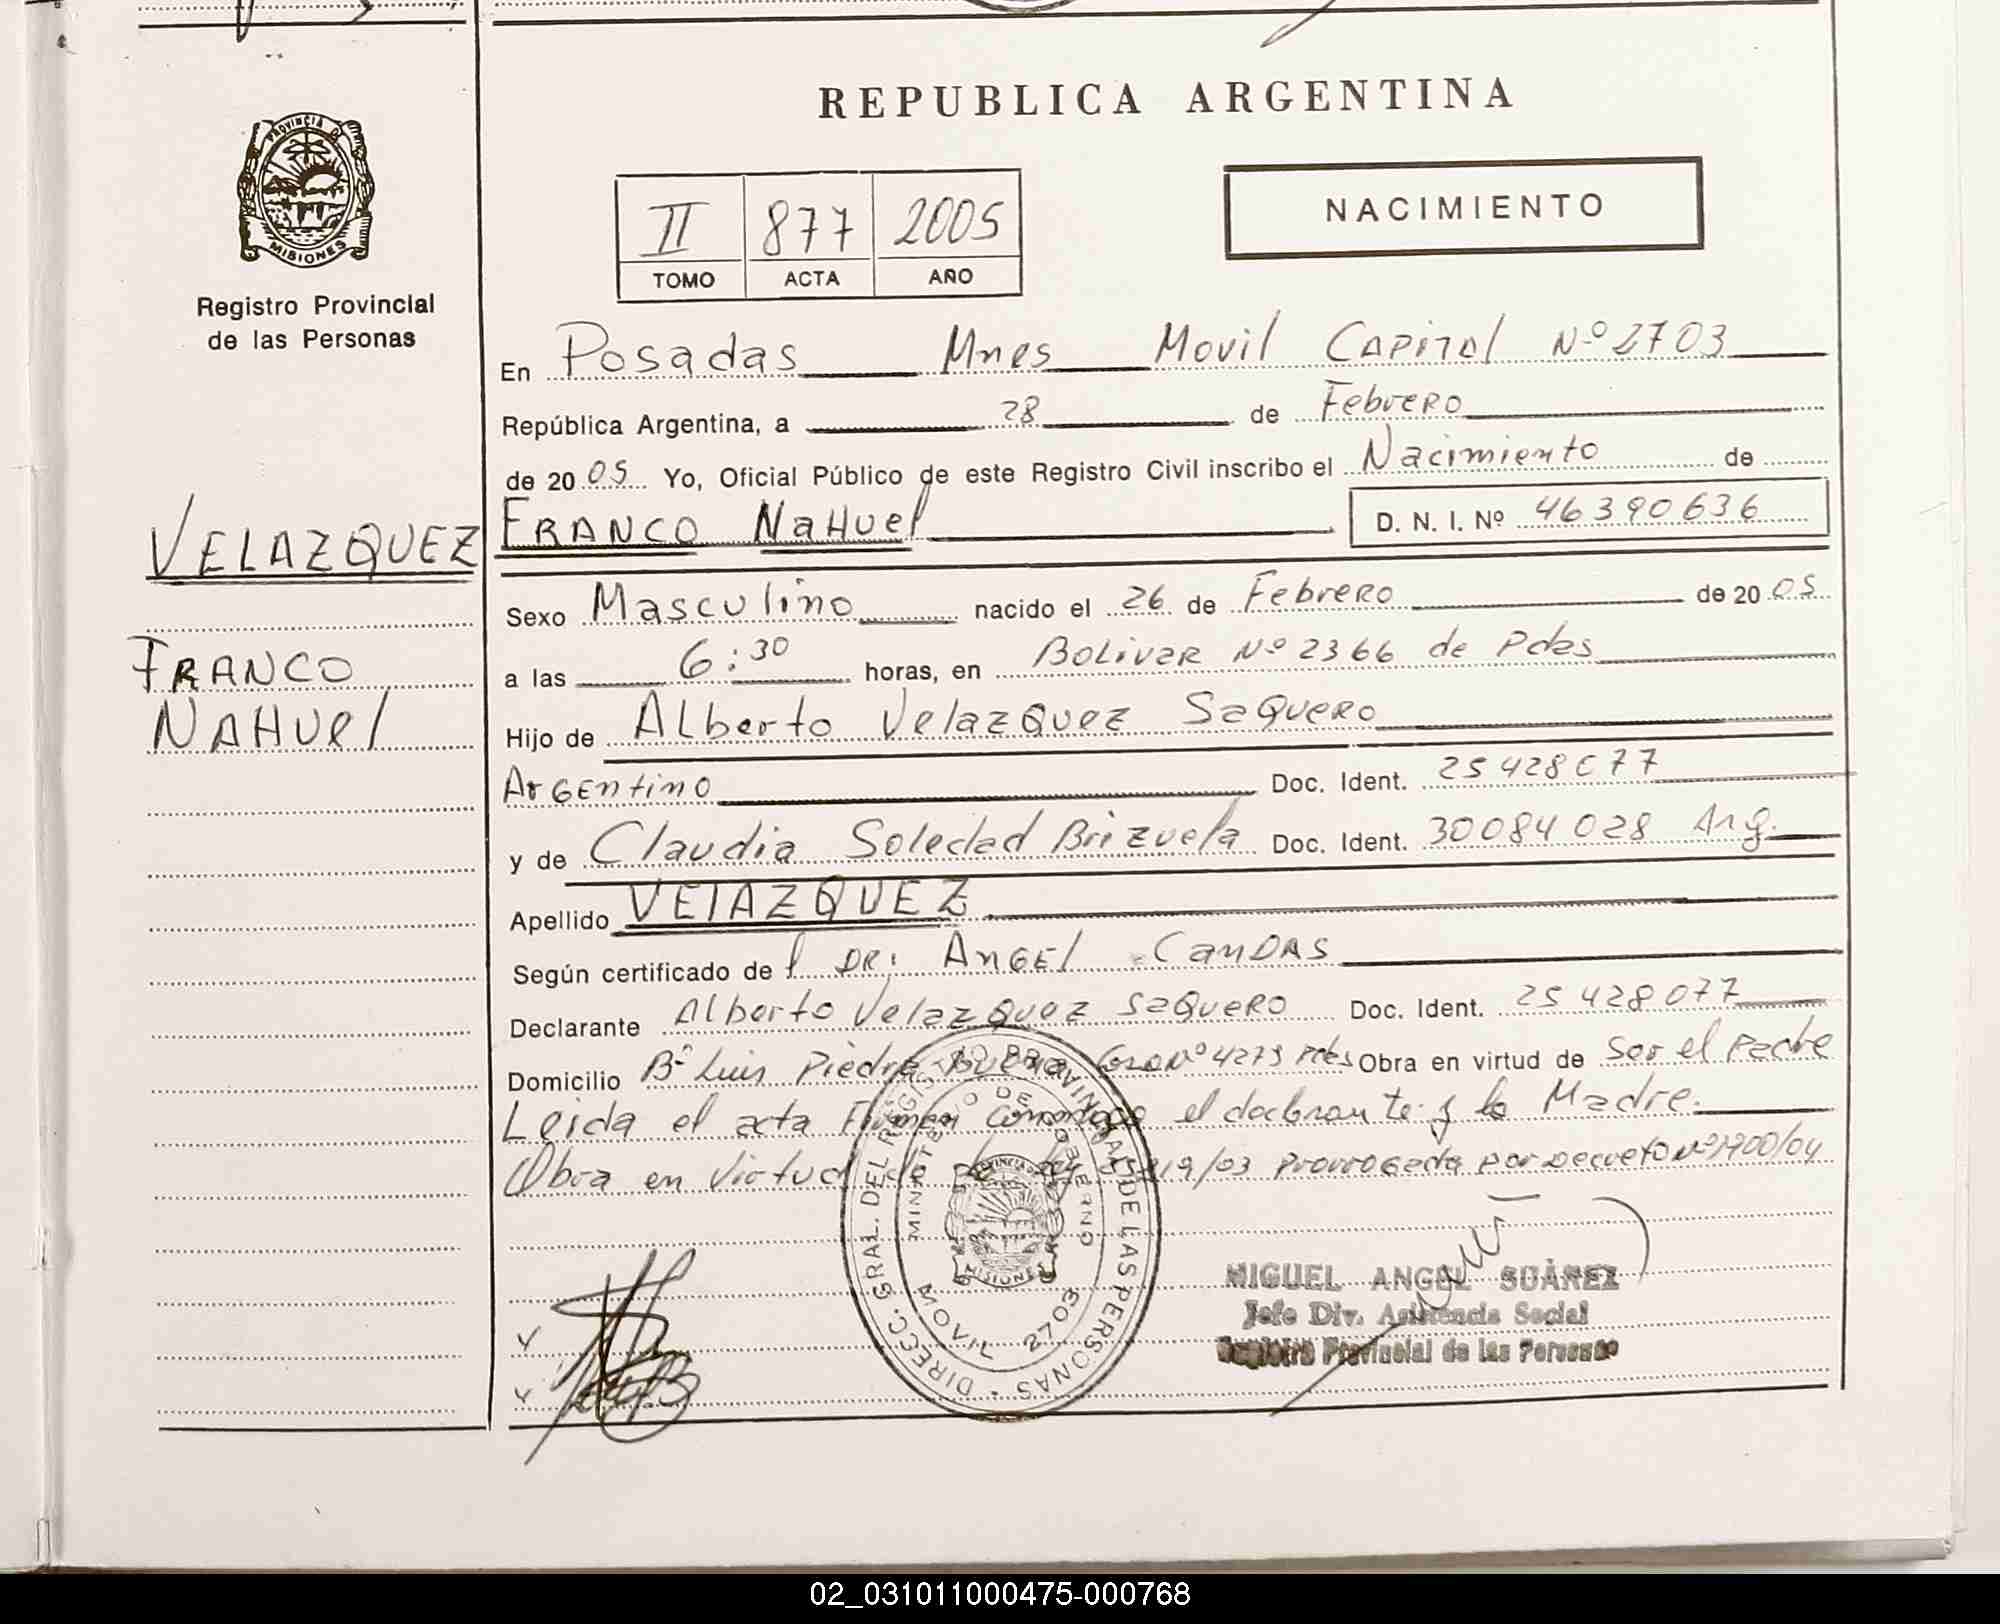 REPUBLICA ARGENTINA
PROVINCIA DE
MISIONES
Registro Provincial
de las Personas
II 877 2005
TOMO ACTA AÑO
NACIMIENTO
En Posadas Mnes Movil Capital Nº 2703
República Argentina, a 28 de Febrero
de 2005 Yo, Oficial Público de este Registro Civil inscribo el Nacimiento de
VELAZQUEZ
FRANCO NAHUel
D. N. I. Nº 46390636
Sexo Masculino nacido el 26 de Febrero de 2005
FRANCO
NAHUel
a las 6:30 horas, en Bolivar Nº 2366 de Pdas
Hijo de Alberto Velazquez Saquero
Argentino Doc. Ident. 25428077
y de Claudia Soledad Brizuela Doc. Ident. 30084028 Arg.
Apellido VELAZQUEZ
Según certificado del DR: ANGEl CANDAS
Declarante Alberto Velazquez Saquero Doc. Ident. 25428077
Domicilio Bº Luis Piedra Buena Casa Nº 4273 Pdas Obra en virtud de Ser el Padre
Leida el acta Firman conmigo el declarante y la Madre.
Obra en Virtud de la Ley /03 Prorrogada por Decreto Nº 1700/04
DIRECC. GRAL. DEL REGISTRO PROVINCIAL DE LAS PERSONAS
MINISTERIO DE GOBIERNO
PROVINCIA DE
MISIONES
MOVIL 2703
MIGUEL ANGEL SUÁREZ
Jefe Div. Asistencia Social
Registro Provincial de las Personas
02_031011000475-000768